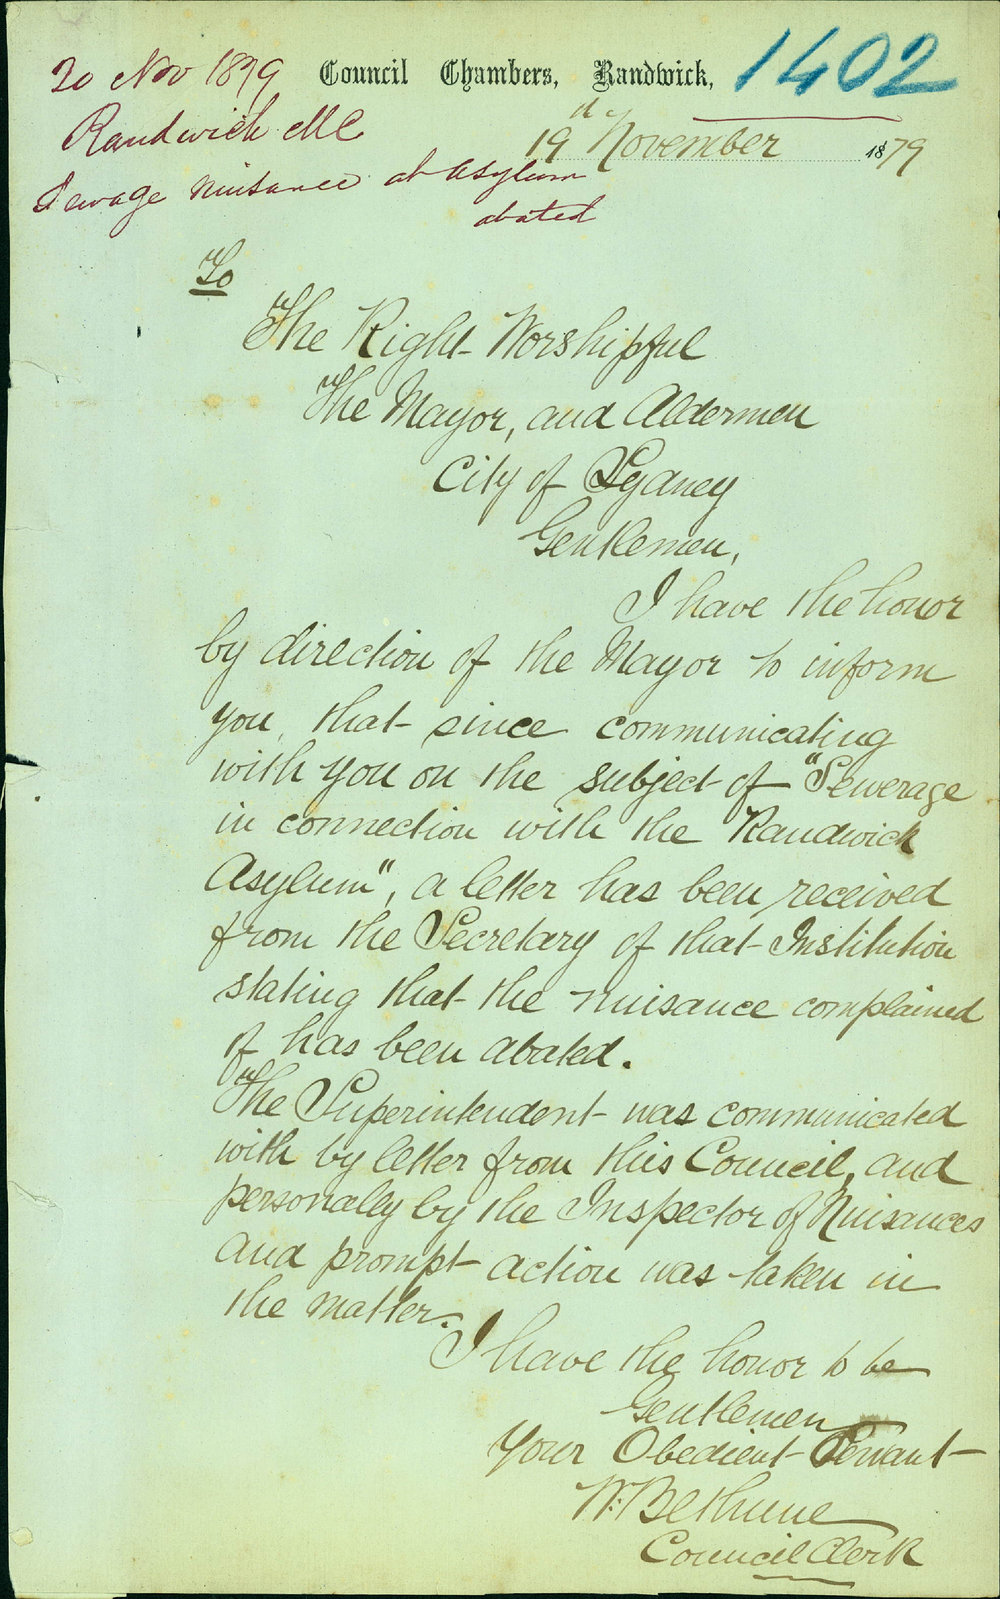 20 Nov 1879
Randwick M C
Sewage nuisance at Asylum
abated
1402
Council Chambers, Randwick,
19th November 1879
To
The Right Worshipful
The Mayor, and Aldermen
City of Sydney
Gentlemen,
I have the honor
by direction of the Mayor to inform
you, that since communicating
with you on the subject of "Sewerage
in connection with the Randwick
Asylum", a letter has been received
from the Secretary of that Institution
stating that the nuisance complained
of has been abated.
The Superintendent was communicated
with by letter from this Council, and
personally by the Inspector of Nuisances
and prompt action was taken in
the matter.
I have the honor to be
Gentlemen
Your Obedient Servant
W. Bethune
Council Clerk